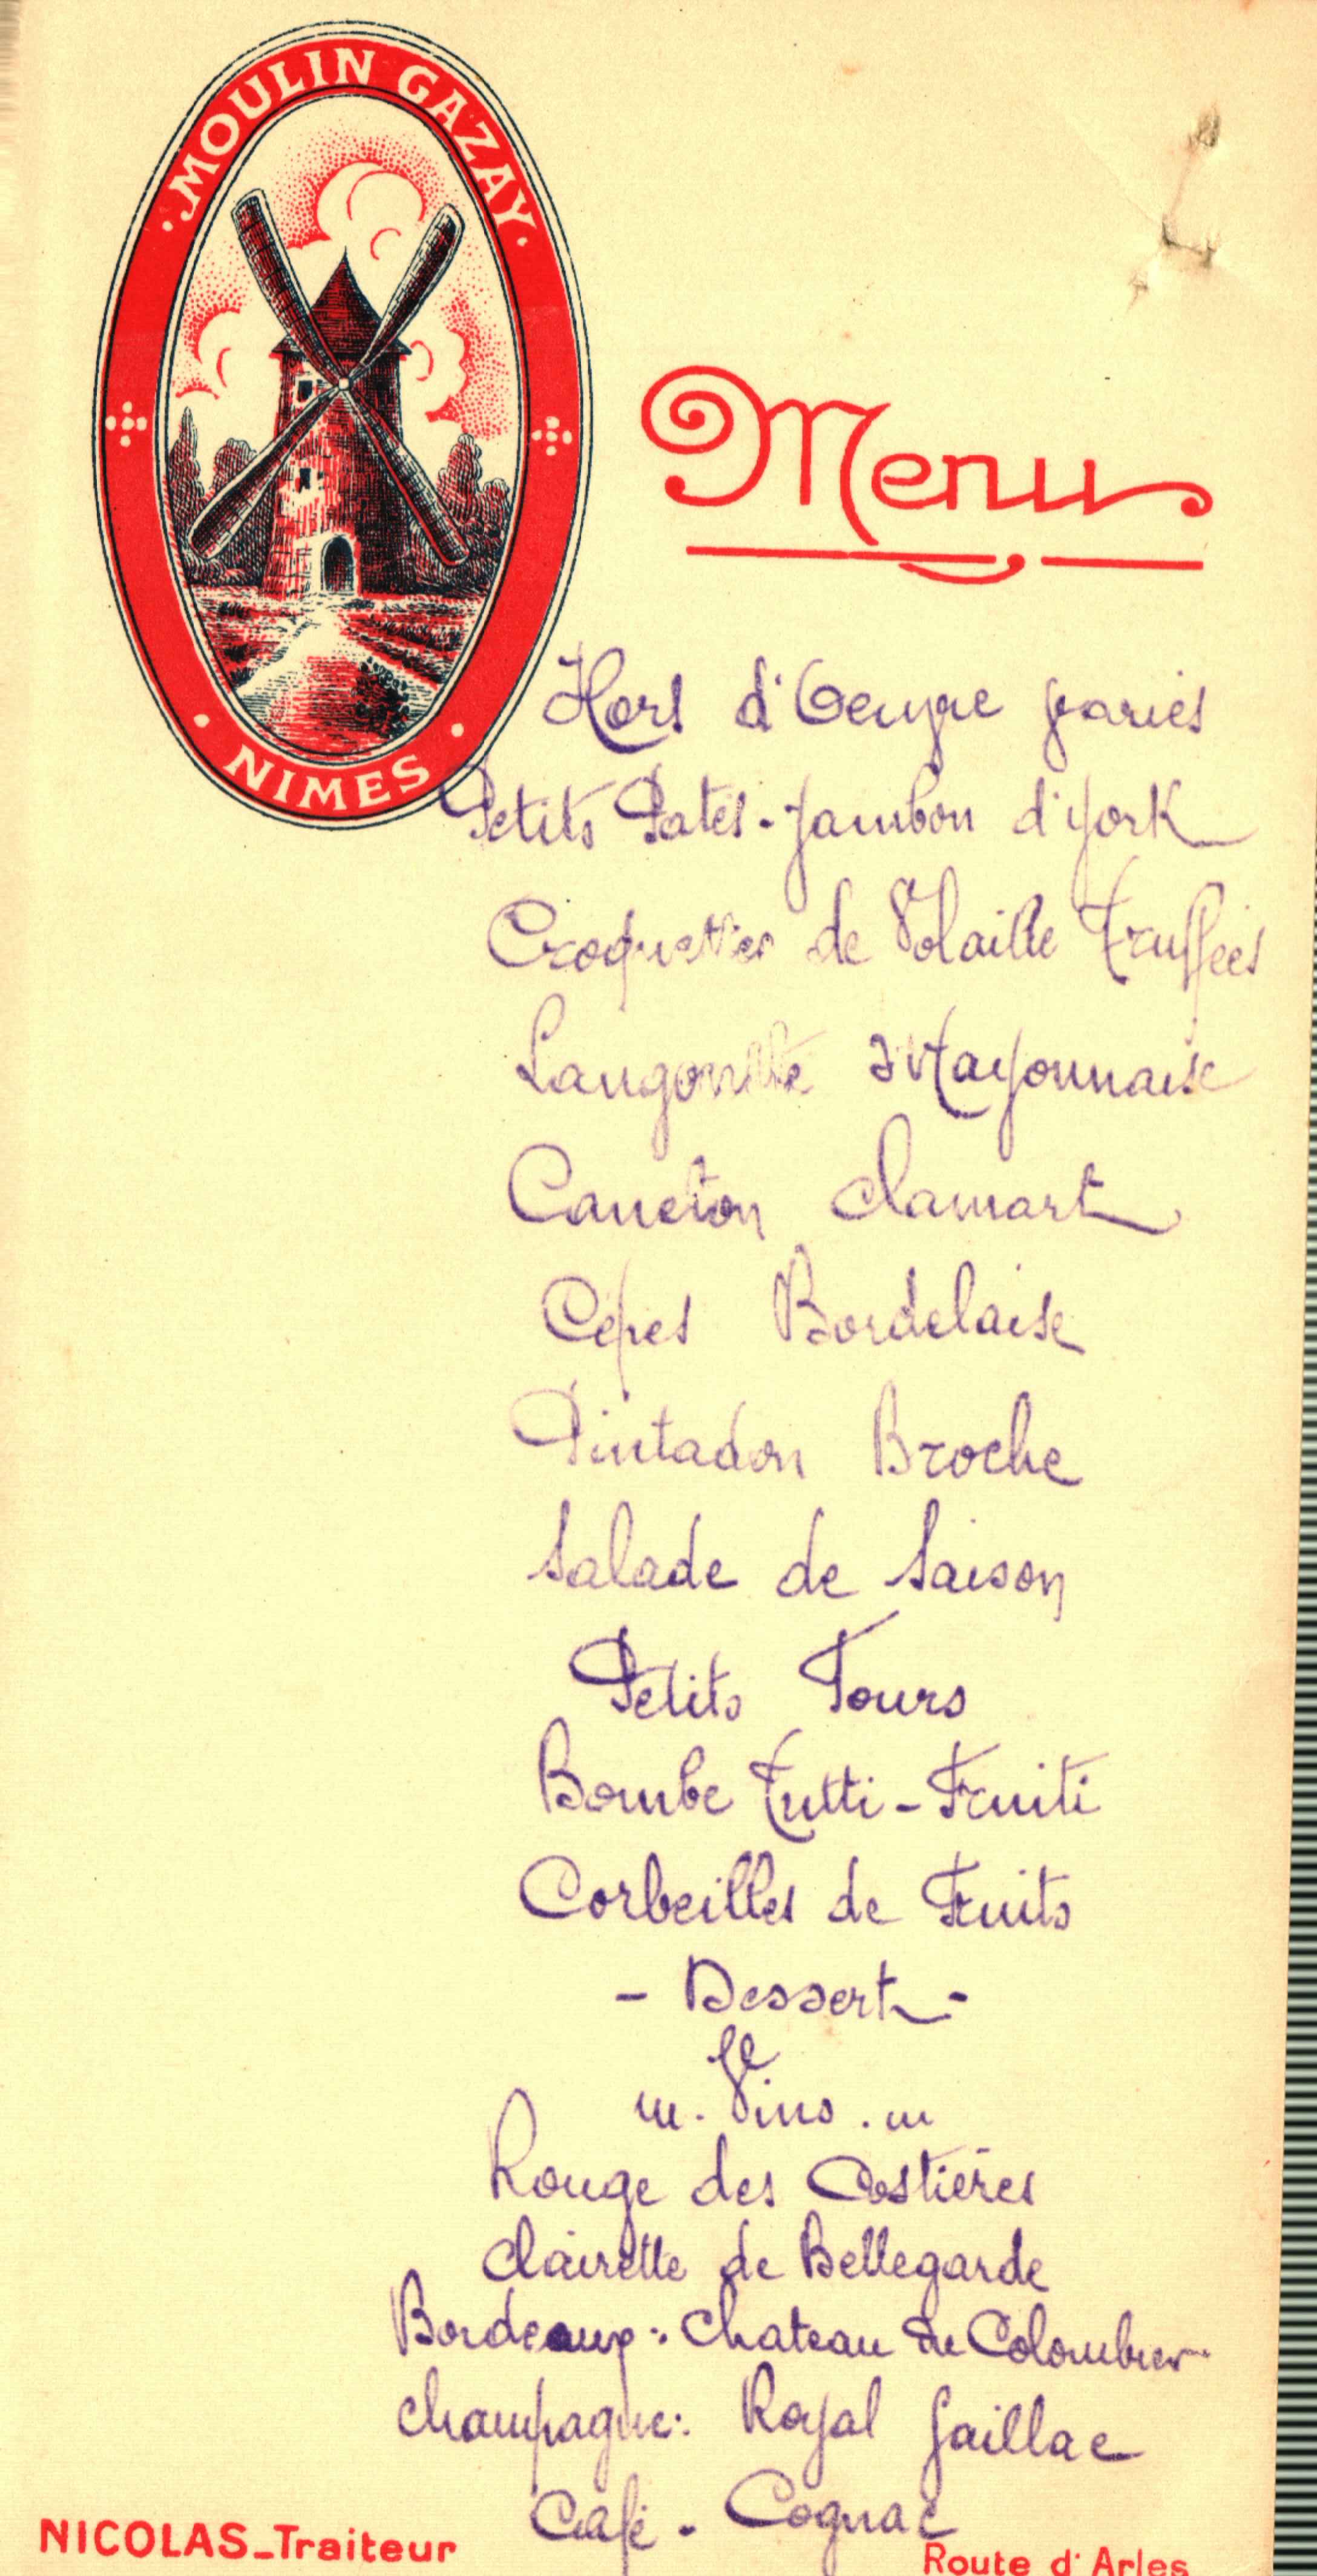 MOULIN GAZAY
NIMES
Menu
Hors d'Oeuvre variés
Petits Patés - Jambon d'York
Croquettes de Volaille Truffées
Langouste Mayonnaise
Caneton Clamart
Cépes Bordelaise
Pintadon Broche
Salade de Saison
Petits Fours
Bombe Tutti-Fruiti
Corbeilles de Fruits
- Dessert -
Vins
Rouge des Costières
Clairette de Bellegarde
Bordeaux: Chateau du Colombier
Champagne: Royal Gaillac
Café - Cognac
NICOLAS_Traiteur
Route d'Arles